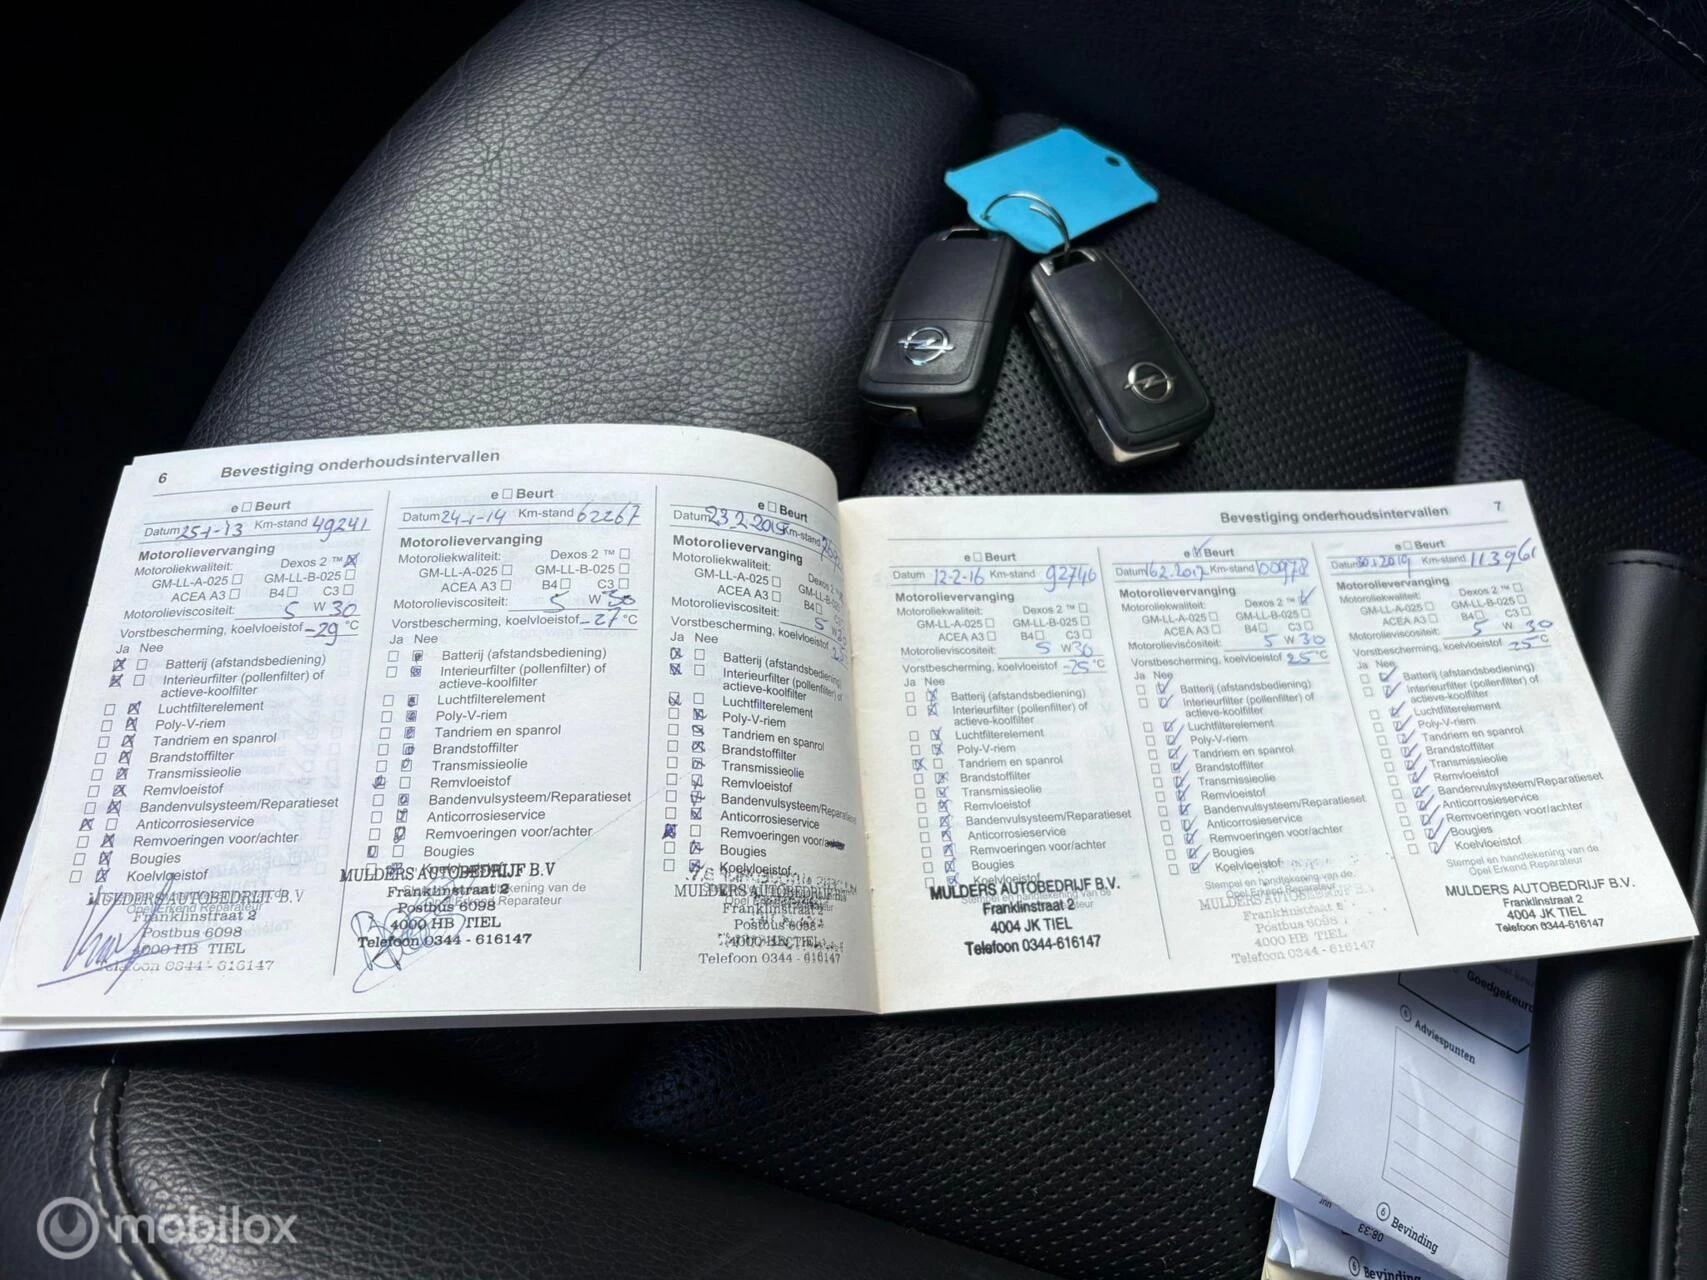 6 Bevestiging onderhoudsintervallen
e □ Beurt
Datum 25-1-13 Km-stand 49241
Motorolievervanging
Motoroliekwaliteit: Dexos 2 ™
GM-LL-A-025 □ GM-LL-B-025 □
ACEA A3 □ B4 □ C3 □
Motorolieviscositeit: 5 W 30
Vorstbescherming, koelvloeistof -29 °C
Ja Nee
Batterij (afstandsbediening)
Interieurfilter (pollenfilter) of
actieve-koolfilter
Luchtfilterelement
Poly-V-riem
Tandriem en spanrol
Brandstoffilter
Transmissieolie
Remvloeistof
Bandenvulsysteem/Reparatieset
Anticorrosieservice
Remvoeringen voor/achter
Bougies
Koelvloeistof
MULDERS AUTOBEDRIJF B.V
Franklinstraat 2
Postbus 6098
4000 HB TIEL
Telefoon 0344 - 616147
e □ Beurt
Datum 24-1-14 Km-stand 62267
Motorolievervanging
Motoroliekwaliteit: Dexos 2 ™ □
GM-LL-A-025 □ GM-LL-B-025 □
ACEA A3 □ B4 □ C3 □
Motorolieviscositeit: 5 W 30
Vorstbescherming, koelvloeistof -27 °C
Ja Nee
Batterij (afstandsbediening)
Interieurfilter (pollenfilter) of
actieve-koolfilter
Luchtfilterelement
Poly-V-riem
Tandriem en spanrol
Brandstoffilter
Transmissieolie
Remvloeistof
Bandenvulsysteem/Reparatieset
Anticorrosieservice
Remvoeringen voor/achter
Bougies
Koelvloeistof
MULDERS AUTOBEDRIJF B.V
Franklinstraat 2
Postbus 6098
Opel Erkend Reparateur
4000 HB TIEL
Telefoon 0344 - 616147
e □ Beurt
Datum 23-2-2015 Km-stand
Motorolievervanging
Motoroliekwaliteit: Dexos 2
GM-LL-A-025 □ GM-LL-B
ACEA A3 □ B4 □
Motorolieviscositeit: 5 W 30
Vorstbescherming, koelvloeistof
Ja Nee
Batterij (afstandsbediening)
Interieurfilter (pollenfilter) of
actieve-koolfilter
Luchtfilterelement
Poly-V-riem
Tandriem en spanrol
Brandstoffilter
Transmissieolie
Remvloeistof
Bandenvulsysteem/Reparatieset
Anticorrosieservice
Remvoeringen voor/achter
Bougies
Koelvloeistof
MULDERS AUTOBEDRIJF
Franklinstraat 2
Postbus 6098
4000 HB TIEL
Telefoon 0344 - 616147
Bevestiging onderhoudsintervallen 7
e □ Beurt
Datum 12-2-16 Km-stand 92746
Motorolievervanging
Motoroliekwaliteit: Dexos 2 ™ □
GM-LL-A-025 □ GM-LL-B-025 □
ACEA A3 □ B4 □ C3 □
Motorolieviscositeit: 5 W 30
Vorstbescherming, koelvloeistof -25 °C
Ja Nee
Batterij (afstandsbediening)
Interieurfilter (pollenfilter) of
actieve-koolfilter
Luchtfilterelement
Poly-V-riem
Tandriem en spanrol
Brandstoffilter
Transmissieolie
Remvloeistof
Bandenvulsysteem/Reparatieset
Anticorrosieservice
Remvoeringen voor/achter
Bougies
Koelvloeistof
MULDERS AUTOBEDRIJF B.V.
Franklinstraat 2
4004 JK TIEL
Telefoon 0344-616147
e Beurt
Datum 16 2.2017 Km-stand 100978
Motorolievervanging
Motoroliekwaliteit: Dexos 2 ™
GM-LL-A-025 □ GM-LL-B-025 □
ACEA A3 □ B4 □ C3 □
Motorolieviscositeit: 5 W 30
Vorstbescherming, koelvloeistof 25 °C
Ja Nee
Batterij (afstandsbediening)
Interieurfilter (pollenfilter) of
actieve-koolfilter
Luchtfilterelement
Poly-V-riem
Tandriem en spanrol
Brandstoffilter
Transmissieolie
Remvloeistof
Bandenvulsysteem/Reparatieset
Anticorrosieservice
Remvoeringen voor/achter
Bougies
Koelvloeistof
Stempel en handtekening van de
Opel Erkend Reparateur
MULDERS AUTOBEDRIJF
Franklinstraat 2
Postbus 6098
4000 HB TIEL
Telefoon 0344 - 616147
e □ Beurt
Datum Km-stand 113961
Motorolievervanging
Motoroliekwaliteit: Dexos 2 ™ □
GM-LL-A-025 □ GM-LL-B-025 □
ACEA A3 □ B4 □ C3 □
Motorolieviscositeit: 5 W 30
Vorstbescherming, koelvloeistof -25 °C
Ja Nee
Batterij (afstandsbediening)
Interieurfilter (pollenfilter) of
actieve-koolfilter
Luchtfilterelement
Poly-V-riem
Tandriem en spanrol
Brandstoffilter
Transmissieolie
Remvloeistof
Bandenvulsysteem/Reparatieset
Anticorrosieservice
Remvoeringen voor/achter
Bougies
Koelvloeistof
Stempel en handtekening van de
Opel Erkend Reparateur
MULDERS AUTOBEDRIJF B.V.
Franklinstraat 2
4004 JK TIEL
Telefoon 0344-616147
Goedgekeurd
Adviespunten
Bevinding
08.33
Bevinding
mobilox